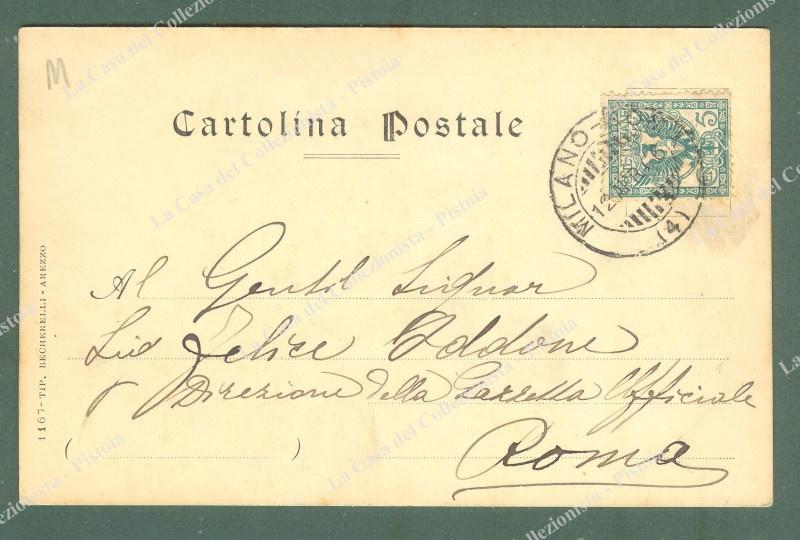 M
Cartolina Postale
5
MILANO
(4)
Al Gentil Signor
Felice Oddone
Direzione della Gazzetta Ufficiale
Roma
( )
1167 - TIP. BECHERELLI - AREZZO
La Casa del Collezionista - Pistoia